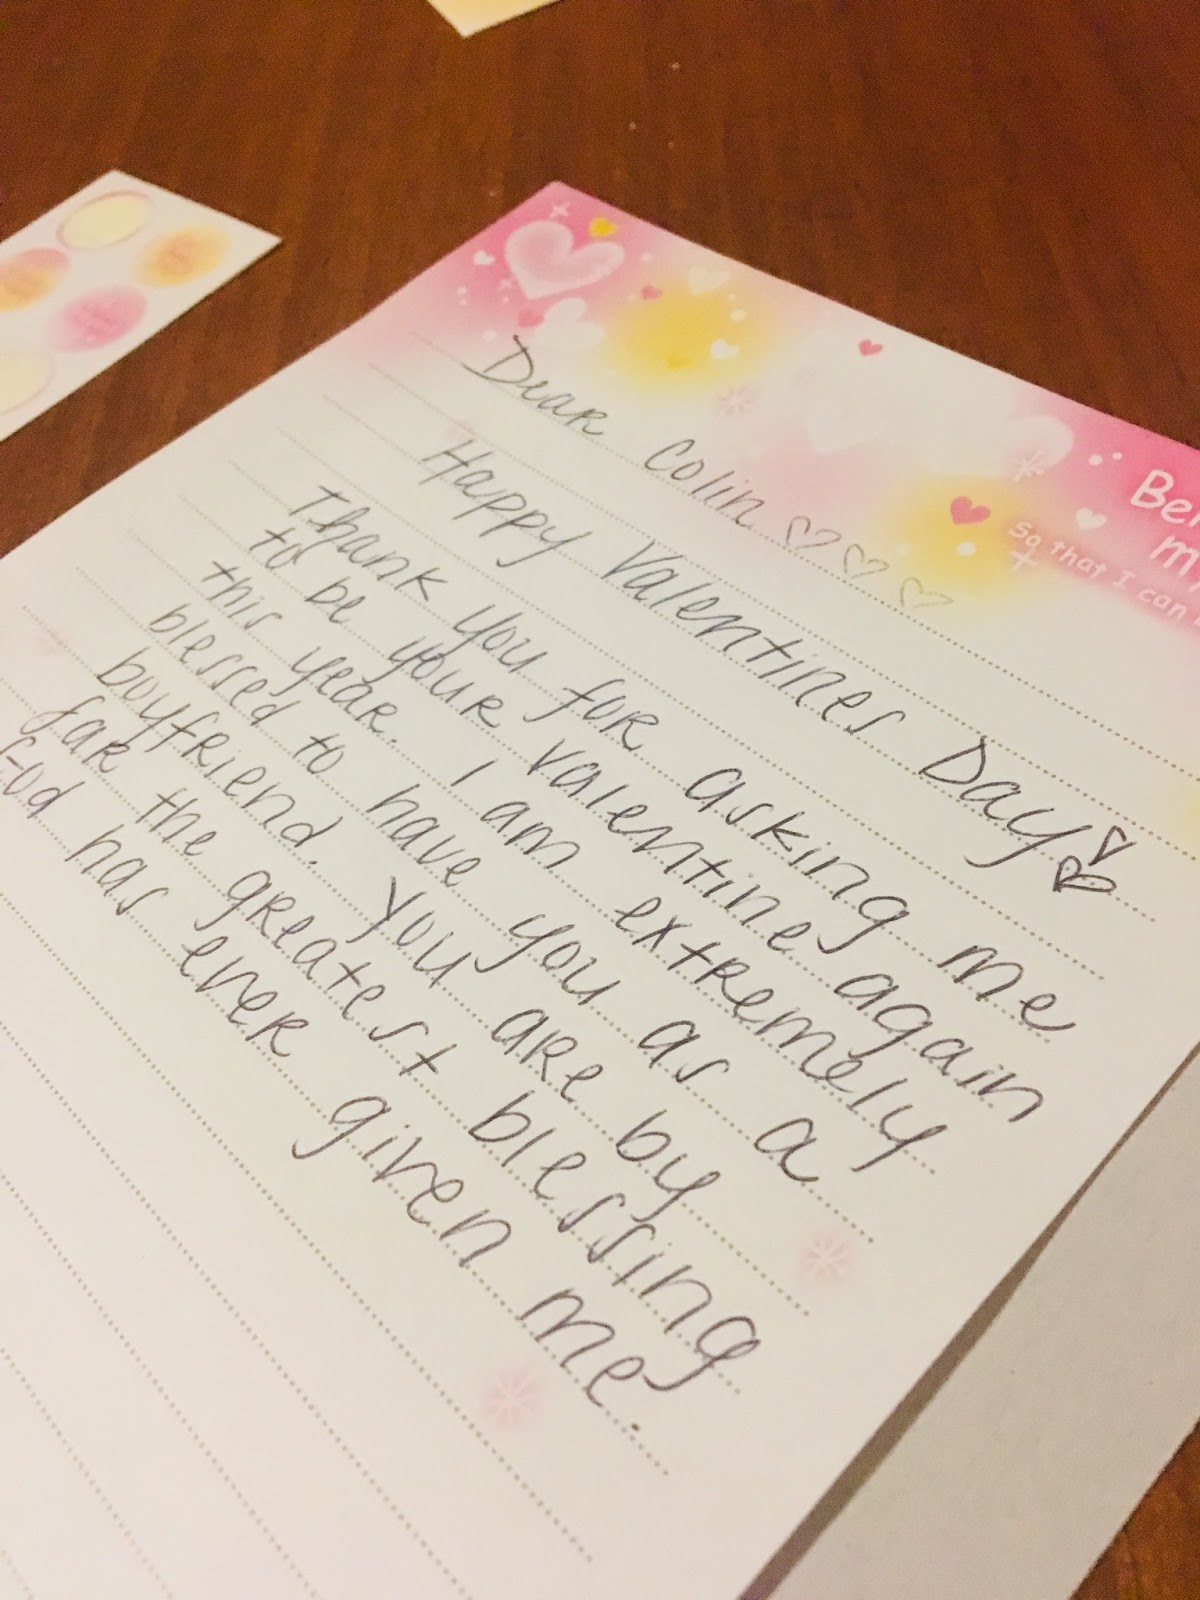 Dear Colin ♡ ♡ ♡
Happy Valentines Day ♡♡
Thank you for asking me
to be your valentine again
this year. I am extremely
blessed to have you as a
boyfriend. You are by
far the greatest blessing
God has ever given me.
So that I can